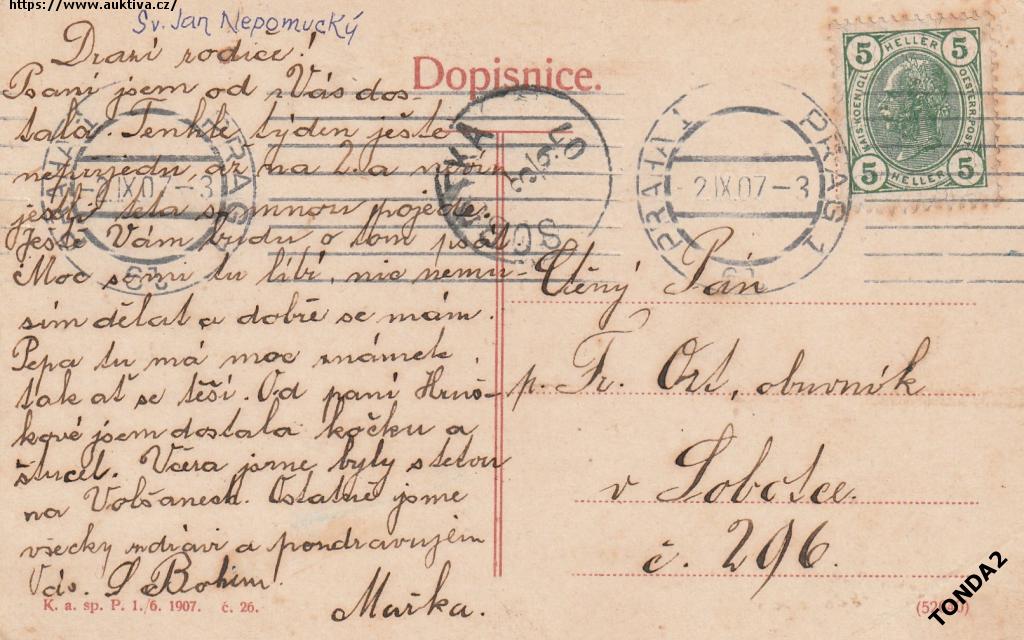 https://www.auktiva.cz/
Sv. Jan Nepomucký
Drazí rodice!
Psaní jsem od Vás dos-
tala. Tenhle týden ještě
nepřijedu, až na 2. a nevím
jestli teta semnou pojede.
Ještě Vám budu o tom psát
Moc se mi tu líbí, nic nemu-
sím dělat a dobře se mám.
Pepa tu má moc známek,
tak ať se těší. Od paní Hruš-
kové jsem dostala kočku a
štucel. Včera jsme byly s tetou
na Volšanech. Ostatně jsme
všecky zdrávi a pozdravujem
Vás. S Bohem.
Mařka.
K. a. sp. P. 1./6. 1907. č. 26.
Dopisnice.
PRAG 1
2 IX 07 - 3
PRAHA 1
SOBOTKA
PRAG 1
2 IX 07 - 3
PRAHA 1
5 HELLER 5
KAIS. KOENIGL.
OESTERR. POST.
5 HELLER 5
Ctěný Pán
p. Fr. Ort, obuvník
v Sobotce.
č. 296.
TONDA2